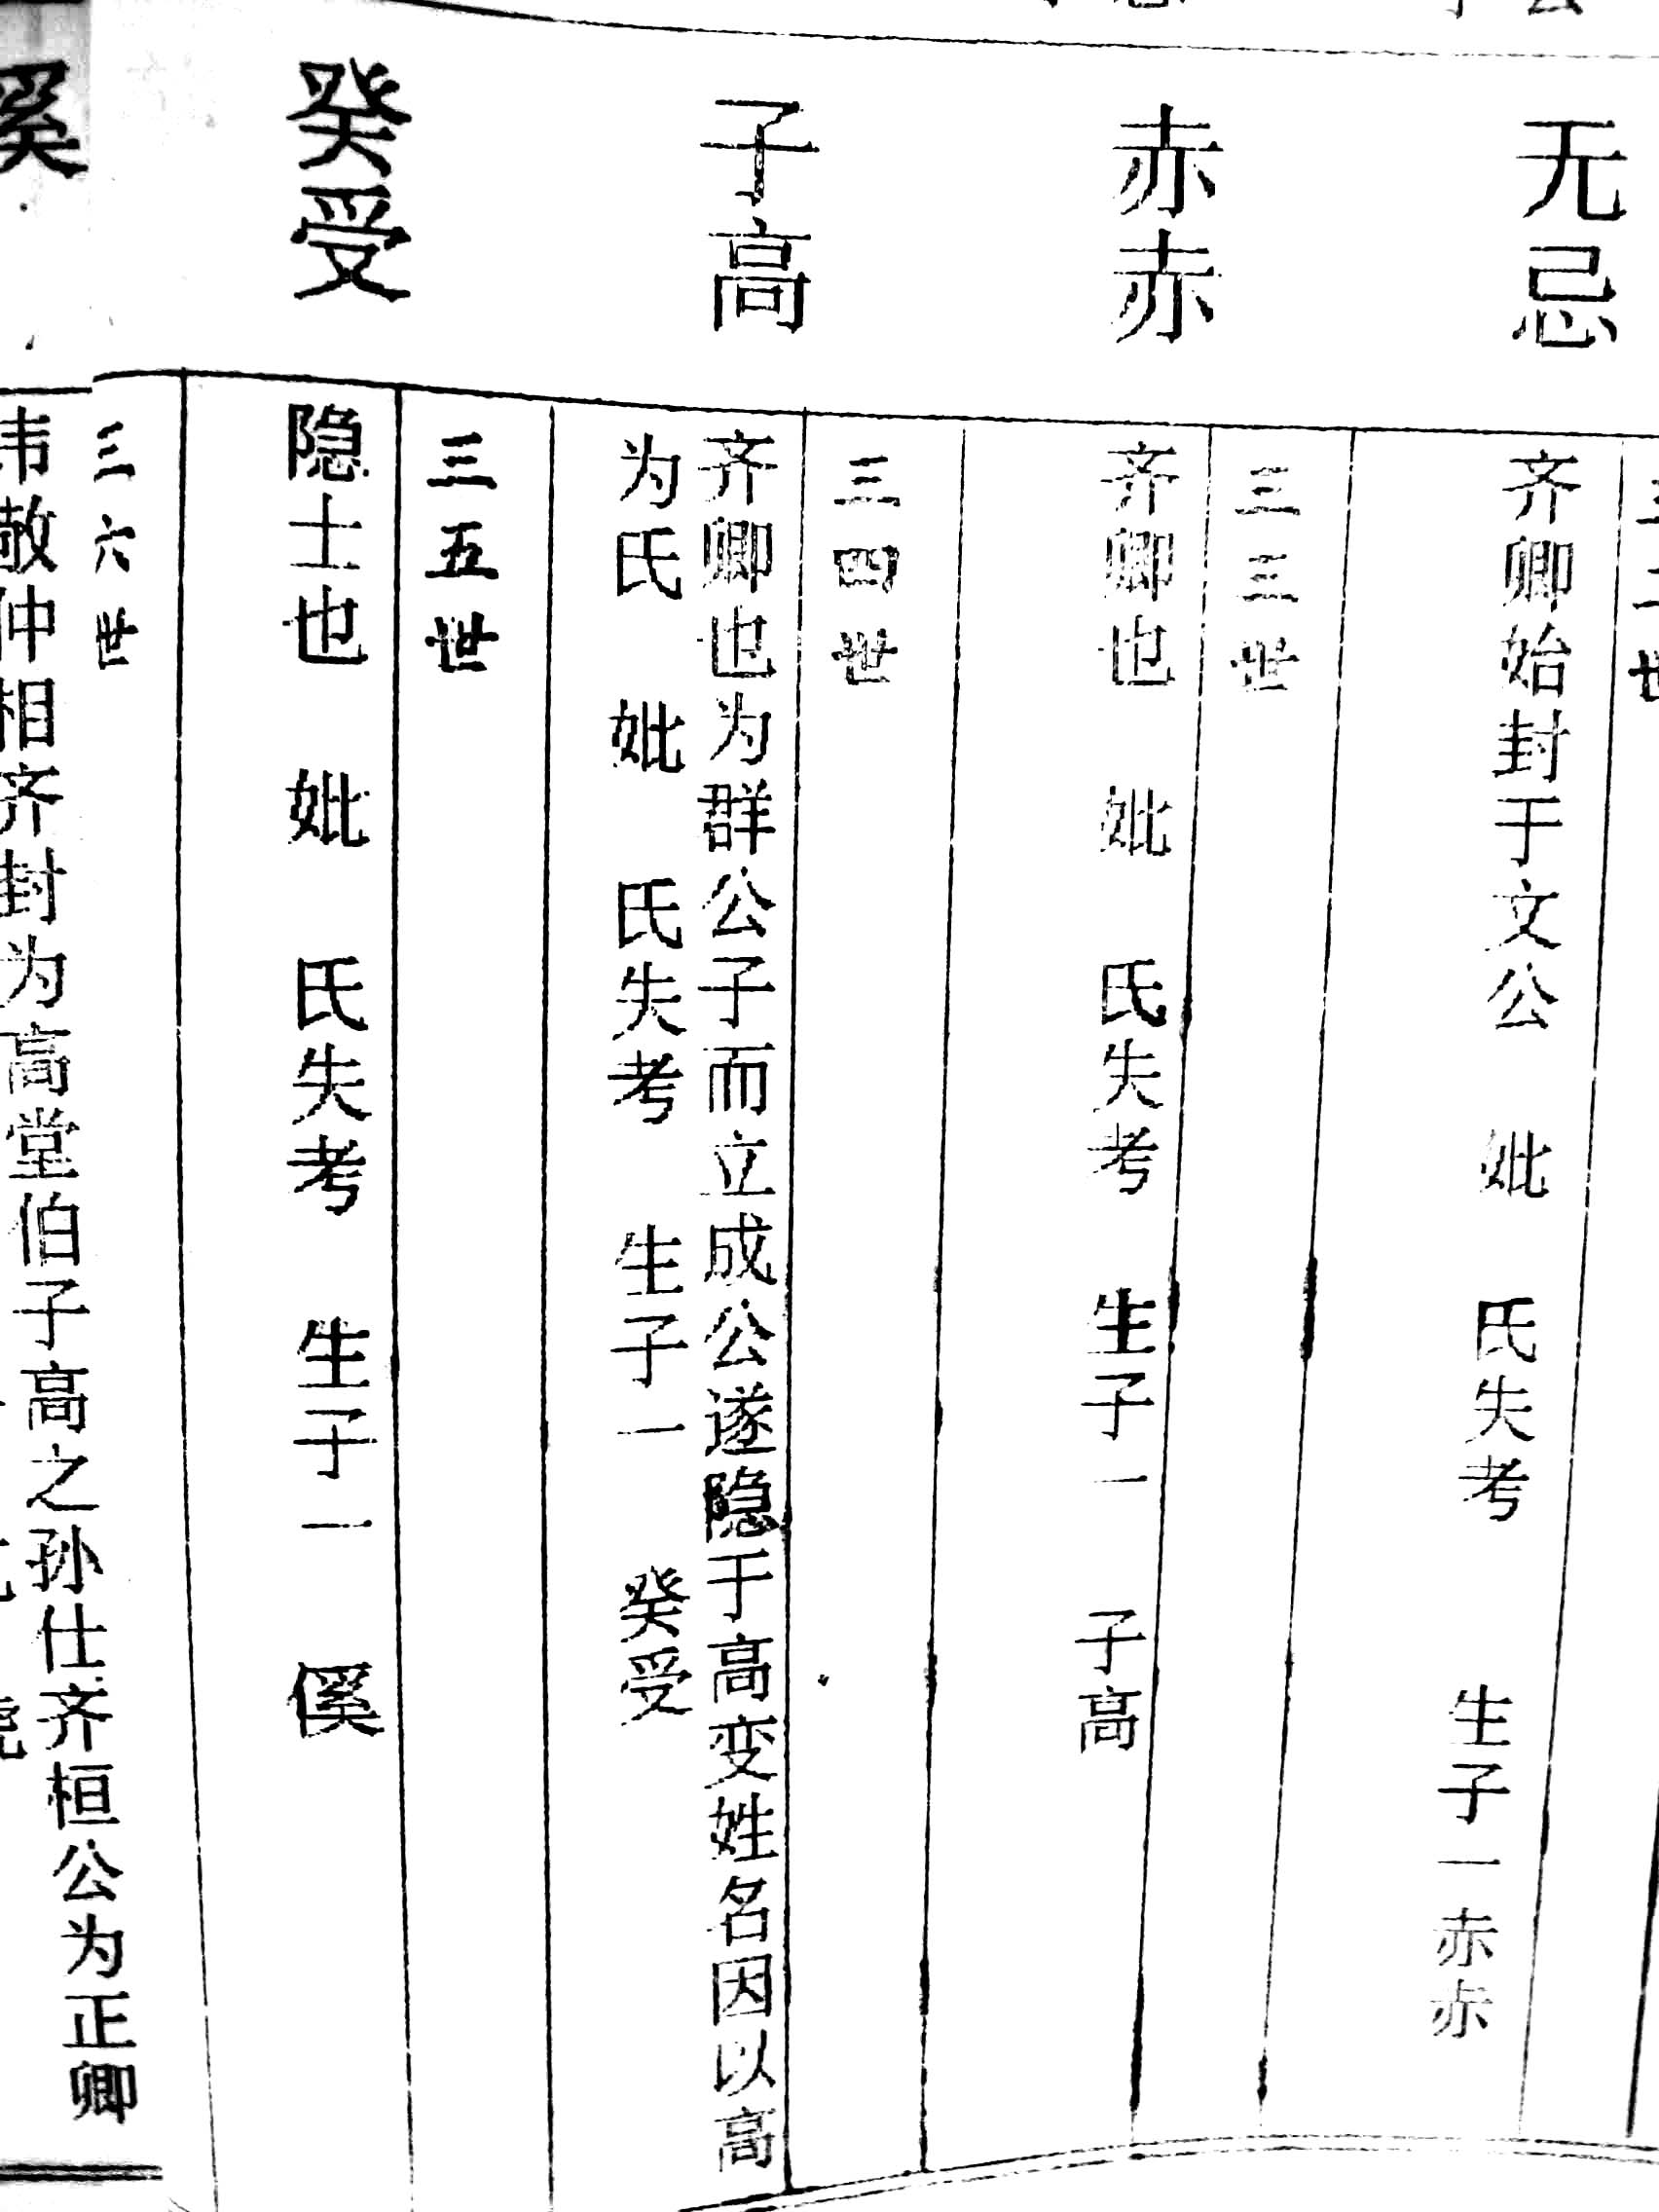 无忌
齐卿始封于文公 妣 氏失考 生子一赤赤
三三世
赤赤
齐卿也 妣 氏失考 生子一 子高
三四世
子高
齐卿也为群公子而立成公遂隐于高变姓名因以高
为氏 妣 氏失考 生子一 癸受
三五世
癸受
隐士也 妣 氏失考 生子一 傒
三六世
敬仲相齐封为高堂伯子高之孙仕齐桓公为正卿